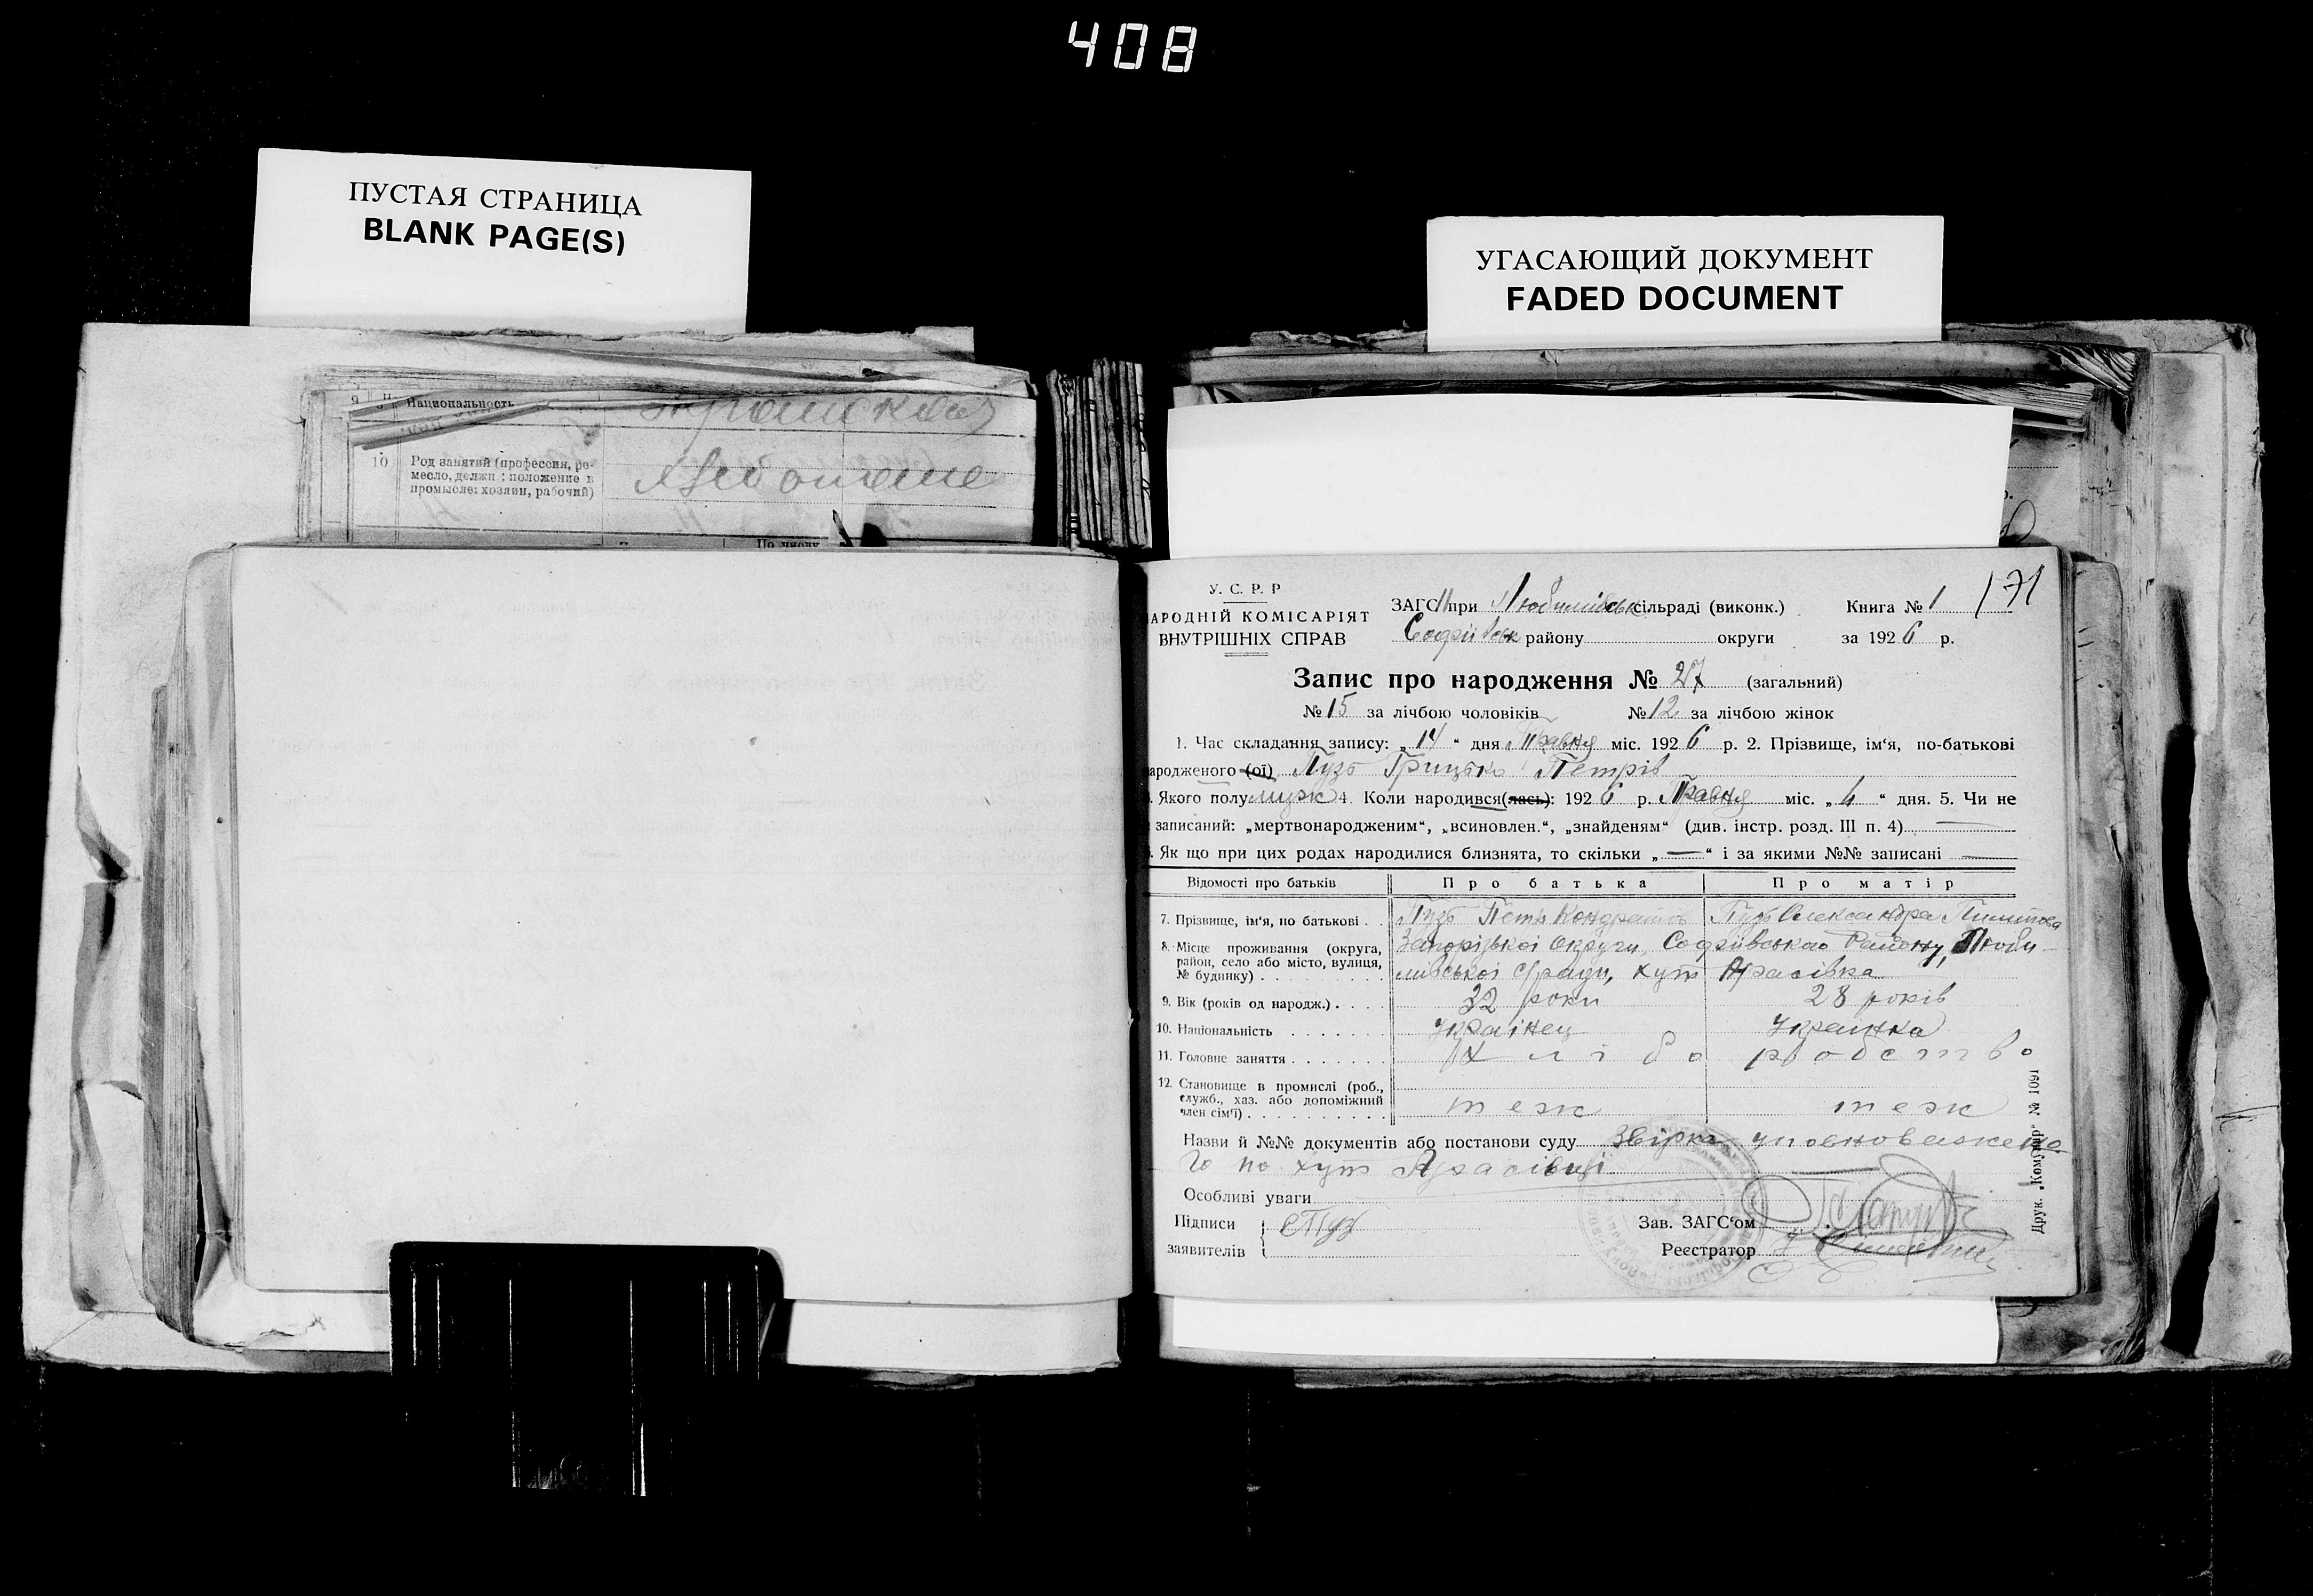 408
ПУСТАЯ СТРАНИЦА
BLANK PAGE(S)
УГАСАЮЩИЙ ДОКУМЕНТ
FADED DOCUMENT
9 Национальность
10 Род занятий (профессия, ре-
месло, должн.; положение в
промысле: хозяин, рабочий)
По числу
У. С. Р. Р
АРОДНІЙ КОМІСАРІЯТ
ВНУТРІШНІХ СПРАВ
ЗАГС при Любимівськ сільраді (виконк.) Книга № 1 171
Софіївськ району округи за 1926 р.
Запис про народження № 27 (загальний)
№ 15 за лічбою чоловіків № 12 за лічбою жінок
1. Час складання запису: „14“ дня Травня міс. 1926 р. 2. Прізвище, ім‘я, по-батькові
ародженого (ої) Пузь Грицько Петрів
. Якого полу мужс 4. Коли народився(лась): 1926 р. Травня міс. „6“ дня. 5. Чи не
записаний: „мертвонародженим“, „всиновлен.“, „знайденям“ (див. інстр. розд. III п. 4) —
. Як що при цих родах народилися близнята, то скільки „—“ і за якими №№ записані —
Відомості про батьків Про батька Про матір
7. Прізвище, ім‘я, по батькові . . Пузь Петр Кондратів Пузь Олександра
8. Місце проживання (округа, Запорізької округи, Софіївського Району, Люби-
район, село або місто, вулиця, мівської с/ради, хут
№ будинку) . . . . . . . . .
9. Вік (років од народж.) . . . . 32 роки 28 років
10. Національність . . . . . . . Українец Українка
11. Головне заняття . . . . . . . Хлібо робство
12. Становище в промислі (роб.,
служб., хаз. або допоміжний
член сім‘ї) . . . . . . . . . . теж теж
Назви й №№ документів або постанови суду звірка уповноважено
го по хут
Особливі уваги
Підписи Пузь
заявителів
Зав. ЗАГС‘ом
Реєстратор
Друк. „Комунар“ № 1091